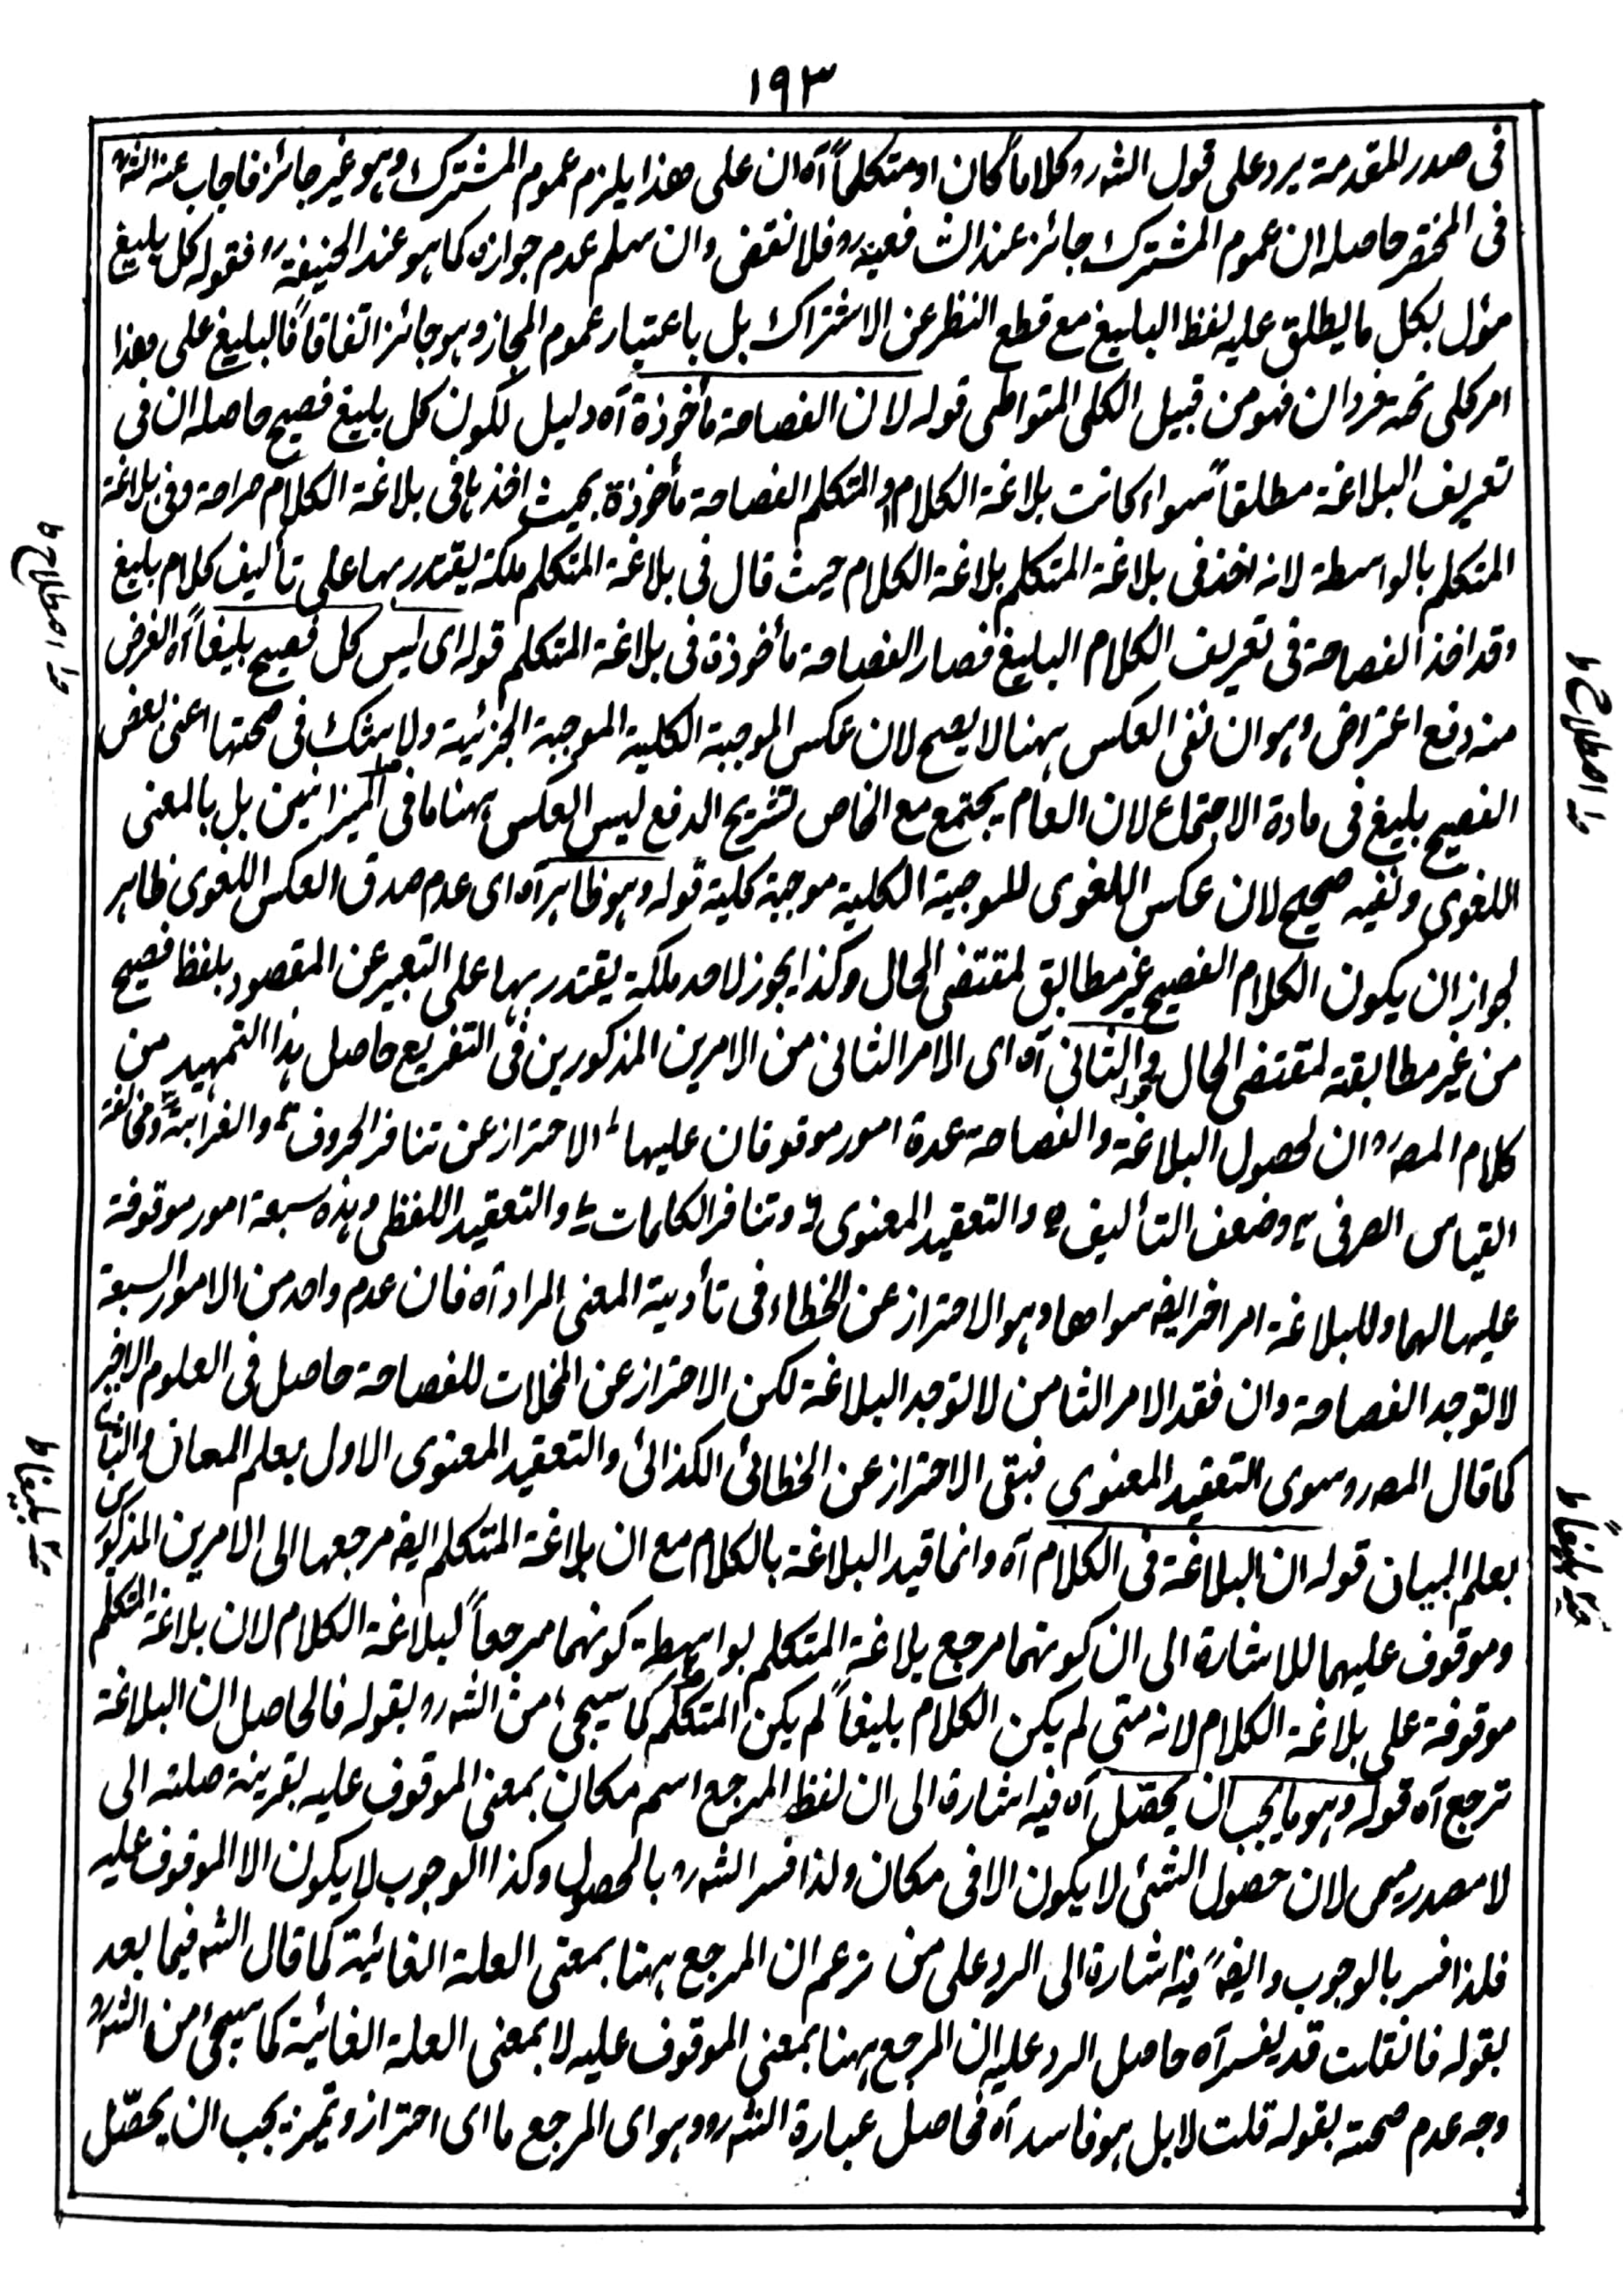 ١٩٣
فى صدر المقدمة يرد على قول الشه رو كلاماً كان او متكلماً آه ان على هذا يلزم عموم المشترك وهو غير جائز فاجاب عنه الشه
فى المختصر حاصله ان عموم المشترك جائز عند الشافعية رو فلا نقض وان سلم عدم جوازه كما هو عند الحنيفة رو فقوله كل بليغ
مؤل بكل ما يطلق عليه لفظ البليغ مع قطع النظر عن الاشتراك بل باعتبار عموم المجاز وهو جائز اتفاقاً فالبليغ على هذا
امر كلى تحته فردان فهو من قبيل الكلى المتواطى قوله لان الفصاحة مأخوذة آه دليل لكون كل بليغ فصيح حاصله ان فى
تعريف البلاغة مطلقاً سواء كانت بلاغة الكلام او المتكلم الفصاحة مأخوذة بحيث اخذها فى بلاغة الكلام صراحة وفى بلاغة
المتكلم بالواسطة لانه اخذ فى بلاغة المتكلم بلاغة الكلام حيث قال فى بلاغة المتكلم ملكة يقتدر بها على تأليف كلام بليغ
وقد اخذ الفصاحة فى تعريف الكلام البليغ فصار الفصاحة مأخوذة فى بلاغة المتكلم قوله اى ليس كل فصيح بليغاً آه الغرض
منه دفع اعتراض وهو ان نفى العكس ههنا لا يصح لان عكس الموجبة الكلية الموجبة الجزئية ولا شك فى صحتها اعنى بعض
الفصيح بليغ فى مادة الاجتماع لان العام يجتمع مع الخاص لتشريح الدفع ليس العكس ههنا ما فى الميزانيين بل بالمعنى
اللغوى ونفيه صحيح لان عكس اللغوى للموجبة الكلية موجبة كلية قوله وهو ظاهر آه اى عدم صدق العكس اللغوى ظاهر
لجواز ان يكون الكلام الفصيح غير مطابق لمقتضى الحال وكذا يجوز لاحد ملكة يقتدر بها على التعبير عن المقصود بلفظ فصيح
من غير مطابقة لمقتضى الحال قوله والثانى آه اى الامر الثانى من الامرين المذكورين فى التفريع حاصل هذا التمهيد من
كلام المصه رو ان لحصول البلاغة والفصاحة عدة امور موقوفان عليها ١ الاحتراز عن تنافر الحروف ٢ والغرابة ٣ ومخالفة
القياس الصرفى ٤ وضعف التأليف ٥ والتعقيد المعنوى ٦ وتنافر الكلمات ٧ والتعقيد اللفظى وهذه سبعة امور موقوفة
عليها لهما وللبلاغة امر اخر ايضه سواها وهو الاحتراز عن الخطاء فى تأدية المعنى المراد آه فان عدم واحد من الامور السبعة
لا لتوجد الفصاحة وان فقد الامر الثامن لا لتوجد البلاغة لكن الاحتراز عن المخلات للفصاحة حاصل فى العلوم الاخير
كما قال المصه رو سوى التعقيد المعنوى فبقى الاحتراز عن الخطائى الكذائى والتعقيد المعنوى الاول بعلم المعانى والثانى
بعلم البيان قوله ان البلاغة فى الكلام آه وانما قيد البلاغة بالكلام مع ان بلاغة المتكلم ايضه مرجعها الى الامرين المذكورين
وموقوف عليهما للاشارة الى ان كونهما مرجع بلاغة المتكلم بواسطة كونهما مرجعاً لبلاغة الكلام لان بلاغة المتكلم
موقوفة على بلاغة الكلام لانه متى لم يكن الكلام بليغاً لم يكن المتكلم كما سيجىء من الشه رو بقوله فالحاصل ان البلاغة
ترجع آه قوله وهو ما يجب ان يحصّل آه فيه اشارة الى ان لفظ المرجع اسم مكان بمعنى الموقوف عليه بقرينة صلته الى
لا مصدر ميمى لان حصول الشئ لا يكون الا فى مكان ولذا فسر الشه رو بالحصول وكذا الوجوب لا يكون الا الموقوف عليه
فلذا فسر بالوجوب وايضهً فيه اشارة الى الرد على من زعم ان المرجع ههنا بمعنى العلة الغائية كما قال الشه فيما بعد
بقوله فانقلت قد يفسر آه حاصل الرد عليه ان المرجع ههنا بمعنى الموقوف عليه لا بمعنى العلة الغائية كما سيجئ من الشه رو
وجه عدم صحته بقوله قلت لا بل هو فاسد آه فحاصل عبارة الشه رو وهو اى المرجع ما اى احتراز وتميز يجب ان يحصّل
ما اصطلاح ط
ما اصطلاح ط
بليغاً ط
بليغاً ط